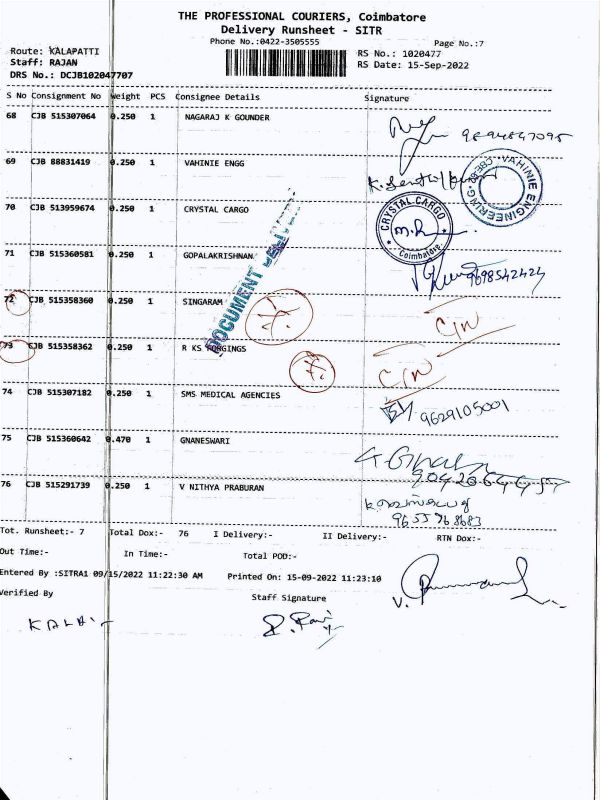 THE PROFESSIONAL COURIERS, Coimbatore
Delivery Runsheet - SITR
Phone No.:0422-3505555
Page No.:7
Route: KALAPATTI
RS No.: 1020477
Staff: RAJAN
RS Date: 15-Sep-2022
DRS No.: DCJB102047707
S No Consignment No Weight PCS Consignee Details Signature
68 CJB 515307064 0.250 1 NAGARAJ K GOUNDER
69 CJB 88831419 0.250 1 VAHINIE ENGG
VAHINIE ENGINEERING
70 CJB 513959674 0.250 1 CRYSTAL CARGO
CRYSTAL CARGO
Coimbatore
71 CJB 515360581 0.250 1 GOPALAKRISHNAN
9698542424
DOCUMENT
72 CJB 515358360 0.250 1 SINGARAM
73 CJB 515358362 0.250 1 R KS FORGINGS
74 CJB 515307182 0.250 1 SMS MEDICAL AGENCIES
9629105001
75 CJB 515360642 0.470 1 GNANESWARI
76 CJB 515291739 0.250 1 V NITHYA PRABURAN
9655768683
Tot. Runsheet:- 7 Total Dox:- 76 I Delivery:- II Delivery:- RTN Dox:-
Out Time:- In Time:- Total POD:-
Entered By :SITRA1 09/15/2022 11:22:30 AM Printed On: 15-09-2022 11:23:10
Verified By Staff Signature